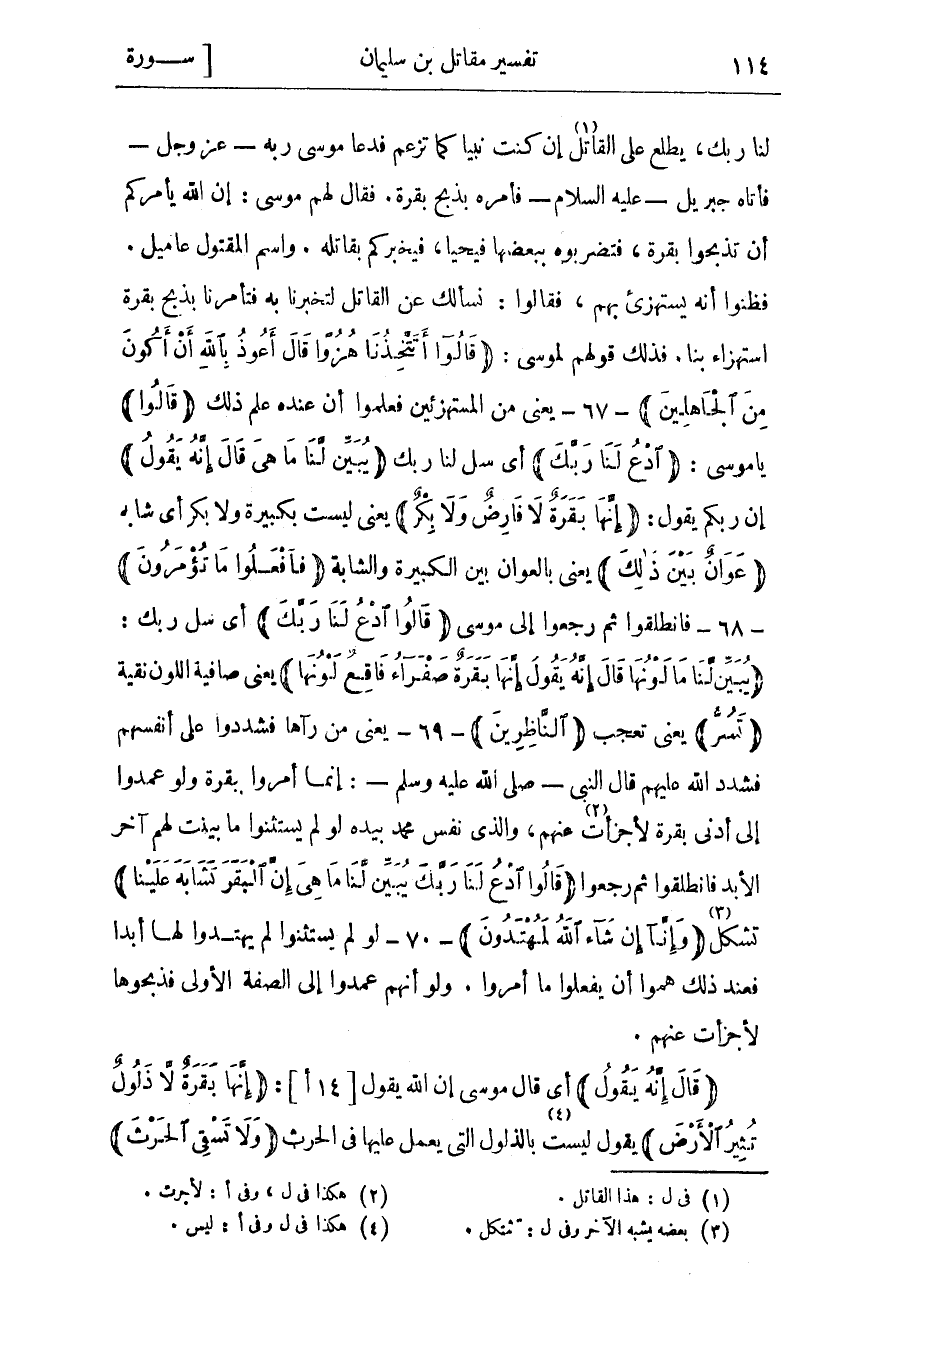 ١١٤ تفسير مقاتل بن سليمان [ ســورة
لنا ربك، يطلع على القاتل(١) إن كنت نبيا كما تزعم فدعا موسى ربه — عز وجل —
فأتاه جبريل — عليه السلام — فأمره بذبح بقرة. فقال لهم موسى : إن الله يأمركم
أن تذبحوا بقرة ، فتضربوه ببعضها فيحيا، فيخبركم بقاتله . واسم المقتول عاميل .
فظنوا أنه يستهزئ بهم ، فقالوا : نسألك عن القاتل لتخبرنا به فتأمرنا بذبح بقرة
استهزاء بنا. فذلك قولهم لموسى : ﴿ قَالُوٓا أَتَتَّخِذُنَا هُزُوًا قَالَ أَعُوذُ بِٱللَّهِ أَنْ أَكُونَ
مِنَ ٱلْجَاهِلِينَ ﴾ – ٦٧ – يعنى من المستهزئين فعلموا أن عنده علم ذلك ﴿ قَالُوا ﴾
ياموسى : ﴿ ٱدْعُ لَنَا رَبَّكَ ﴾ أى سل لنا ربك ﴿ يُبَيِّن لَّنَا مَا هِىَ قَالَ إِنَّهُ يَقُولُ ﴾
إن ربكم يقول: ﴿ إِنَّهَا بَقَرَةٌ لَا فَارِضٌ وَلَا بِكْرٌ ﴾ يعنى ليست بكبيرة ولا بكر أى شابه
﴿ عَوَانٌ بَيْنَ ذَٰلِكَ ﴾ يعنى بالعوان بين الكبيرة والشابة ﴿ فَٱفْعَلُوا مَا تُؤْمَرُونَ ﴾
– ٦٨ – فانطلقوا ثم رجعوا إلى موسى ﴿ قَالُوا ٱدْعُ لَنَا رَبَّكَ ﴾ أى سل ربك :
﴿ يُبَيِّن لَّنَا مَا لَوْنُهَا قَالَ إِنَّهُ يَقُولُ إِنَّهَا بَقَرَةٌ صَفْرَآءُ فَاقِعٌ لَوْنُهَا ﴾ يعنى صافية اللون نقية
﴿ تَسُرُّ ﴾ يعنى تعجب ﴿ ٱلنَّاظِرِينَ ﴾ – ٦٩ – يعنى من رآها فشددوا على أنفسهم
فشدد الله عليهم قال النبى — صلى الله عليه وسلم — : إنما أمروا ببقرة ولو عمدوا
إلى أدنى بقرة لأجزأت(٢) عنهم، والذى نفس محمد بيده لو لم يستثنوا ما بينت لهم آخر
الأبد فانطلقوا ثم رجعوا ﴿ قَالُوا ٱدْعُ لَنَا رَبَّكَ يُبَيِّن لَّنَا مَا هِىَ إِنَّ ٱلْبَقَرَ تَشَابَهَ عَلَيْنَا ﴾
تشكل(٣) ﴿ وَإِنَّآ إِن شَآءَ ٱللَّهُ لَمُهْتَدُونَ ﴾ – ٧٠ – لو لم يستثنوا لم يهتدوا لها أبدا
فعند ذلك هموا أن يفعلوا ما أمروا . ولو أنهم عمدوا إلى الصفة الأولى فذبحوها
لأجزأت عنهم .
﴿ قَالَ إِنَّهُ يَقُولُ ﴾ أى قال موسى إن الله يقول [ ١٤ أ ] : ﴿ إِنَّهَا بَقَرَةٌ لَّا ذَلُولٌ
تُثِيرُ ٱلْأَرْضَ ﴾ يقول ليست(٤) بالذلول التى يعمل عليها فى الحرث ﴿ وَلَا تَسْقِى ٱلْحَرْثَ ﴾
(١) فى ل : هذا القاتل . (٢) هكذا فى ل ، وفى أ : لأجرت .
(٣) بعضه يشبه الآخر وفى ل : تمتكل . (٤) هكذا فى ل وفى أ : ليس .